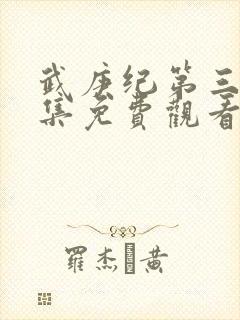 武庚纪第三
集免费觀看
羅杰 黄